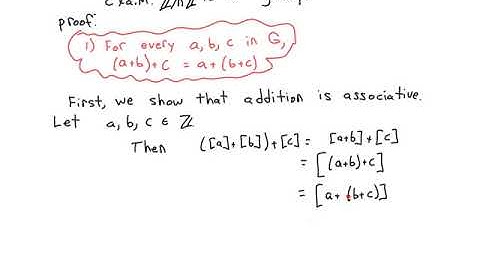 proof:
1) For every a, b, c in G,
(a+b)+c = a+(b+c)
First, we show that addition is associative.
Let a, b, c ∈ ℤ
Then ([a]+[b])+[c] = [a+b]+[c]
= [(a+b)+c]
= [a+(b+c)]